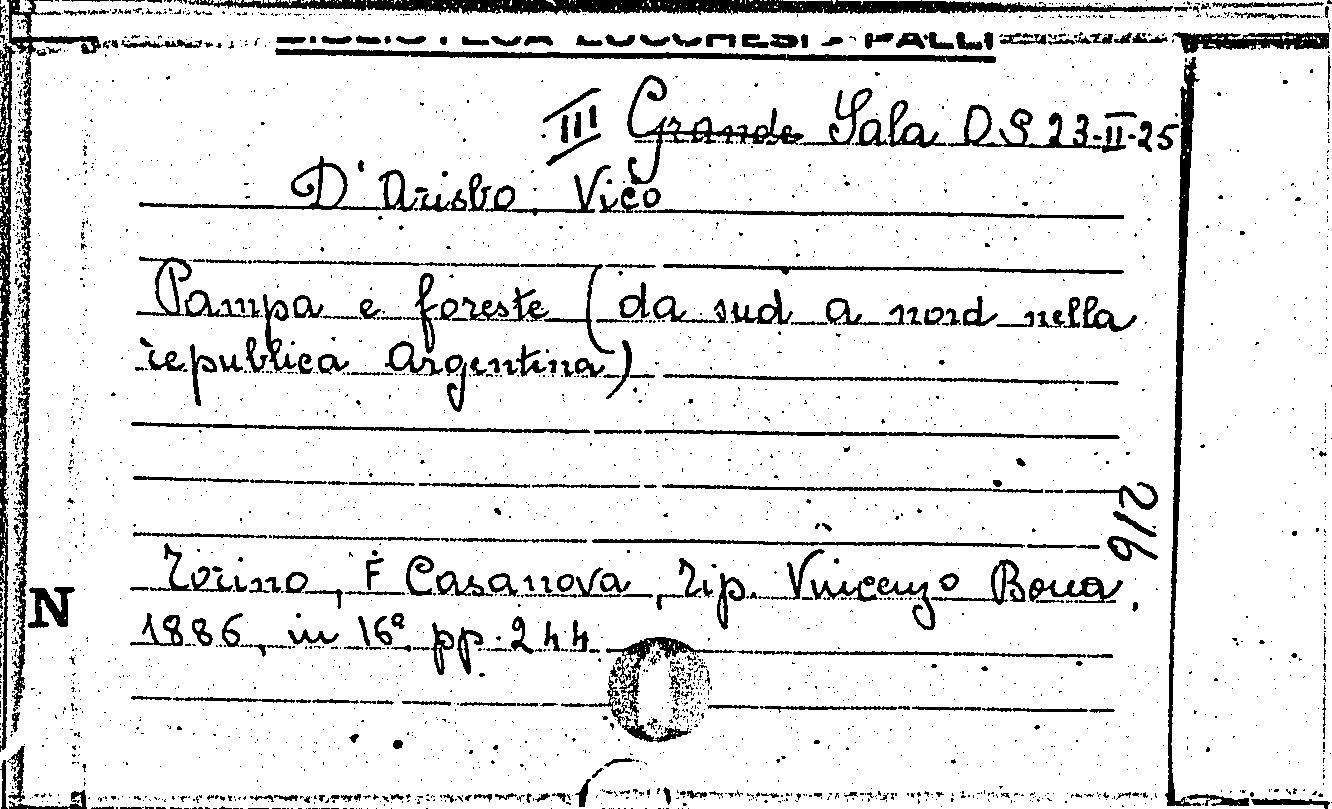 BIBLIOTECA LUCCHESI - PALLI
III Grande Sala D.S. 23-II-25
D'Arisbo, Vico
Pampa e foreste (da sud a nord nella
republica Argentina)
216
Torino, F Casanova, Tip. Vincenzo Bona,
N
1886, in 16° pp. 244